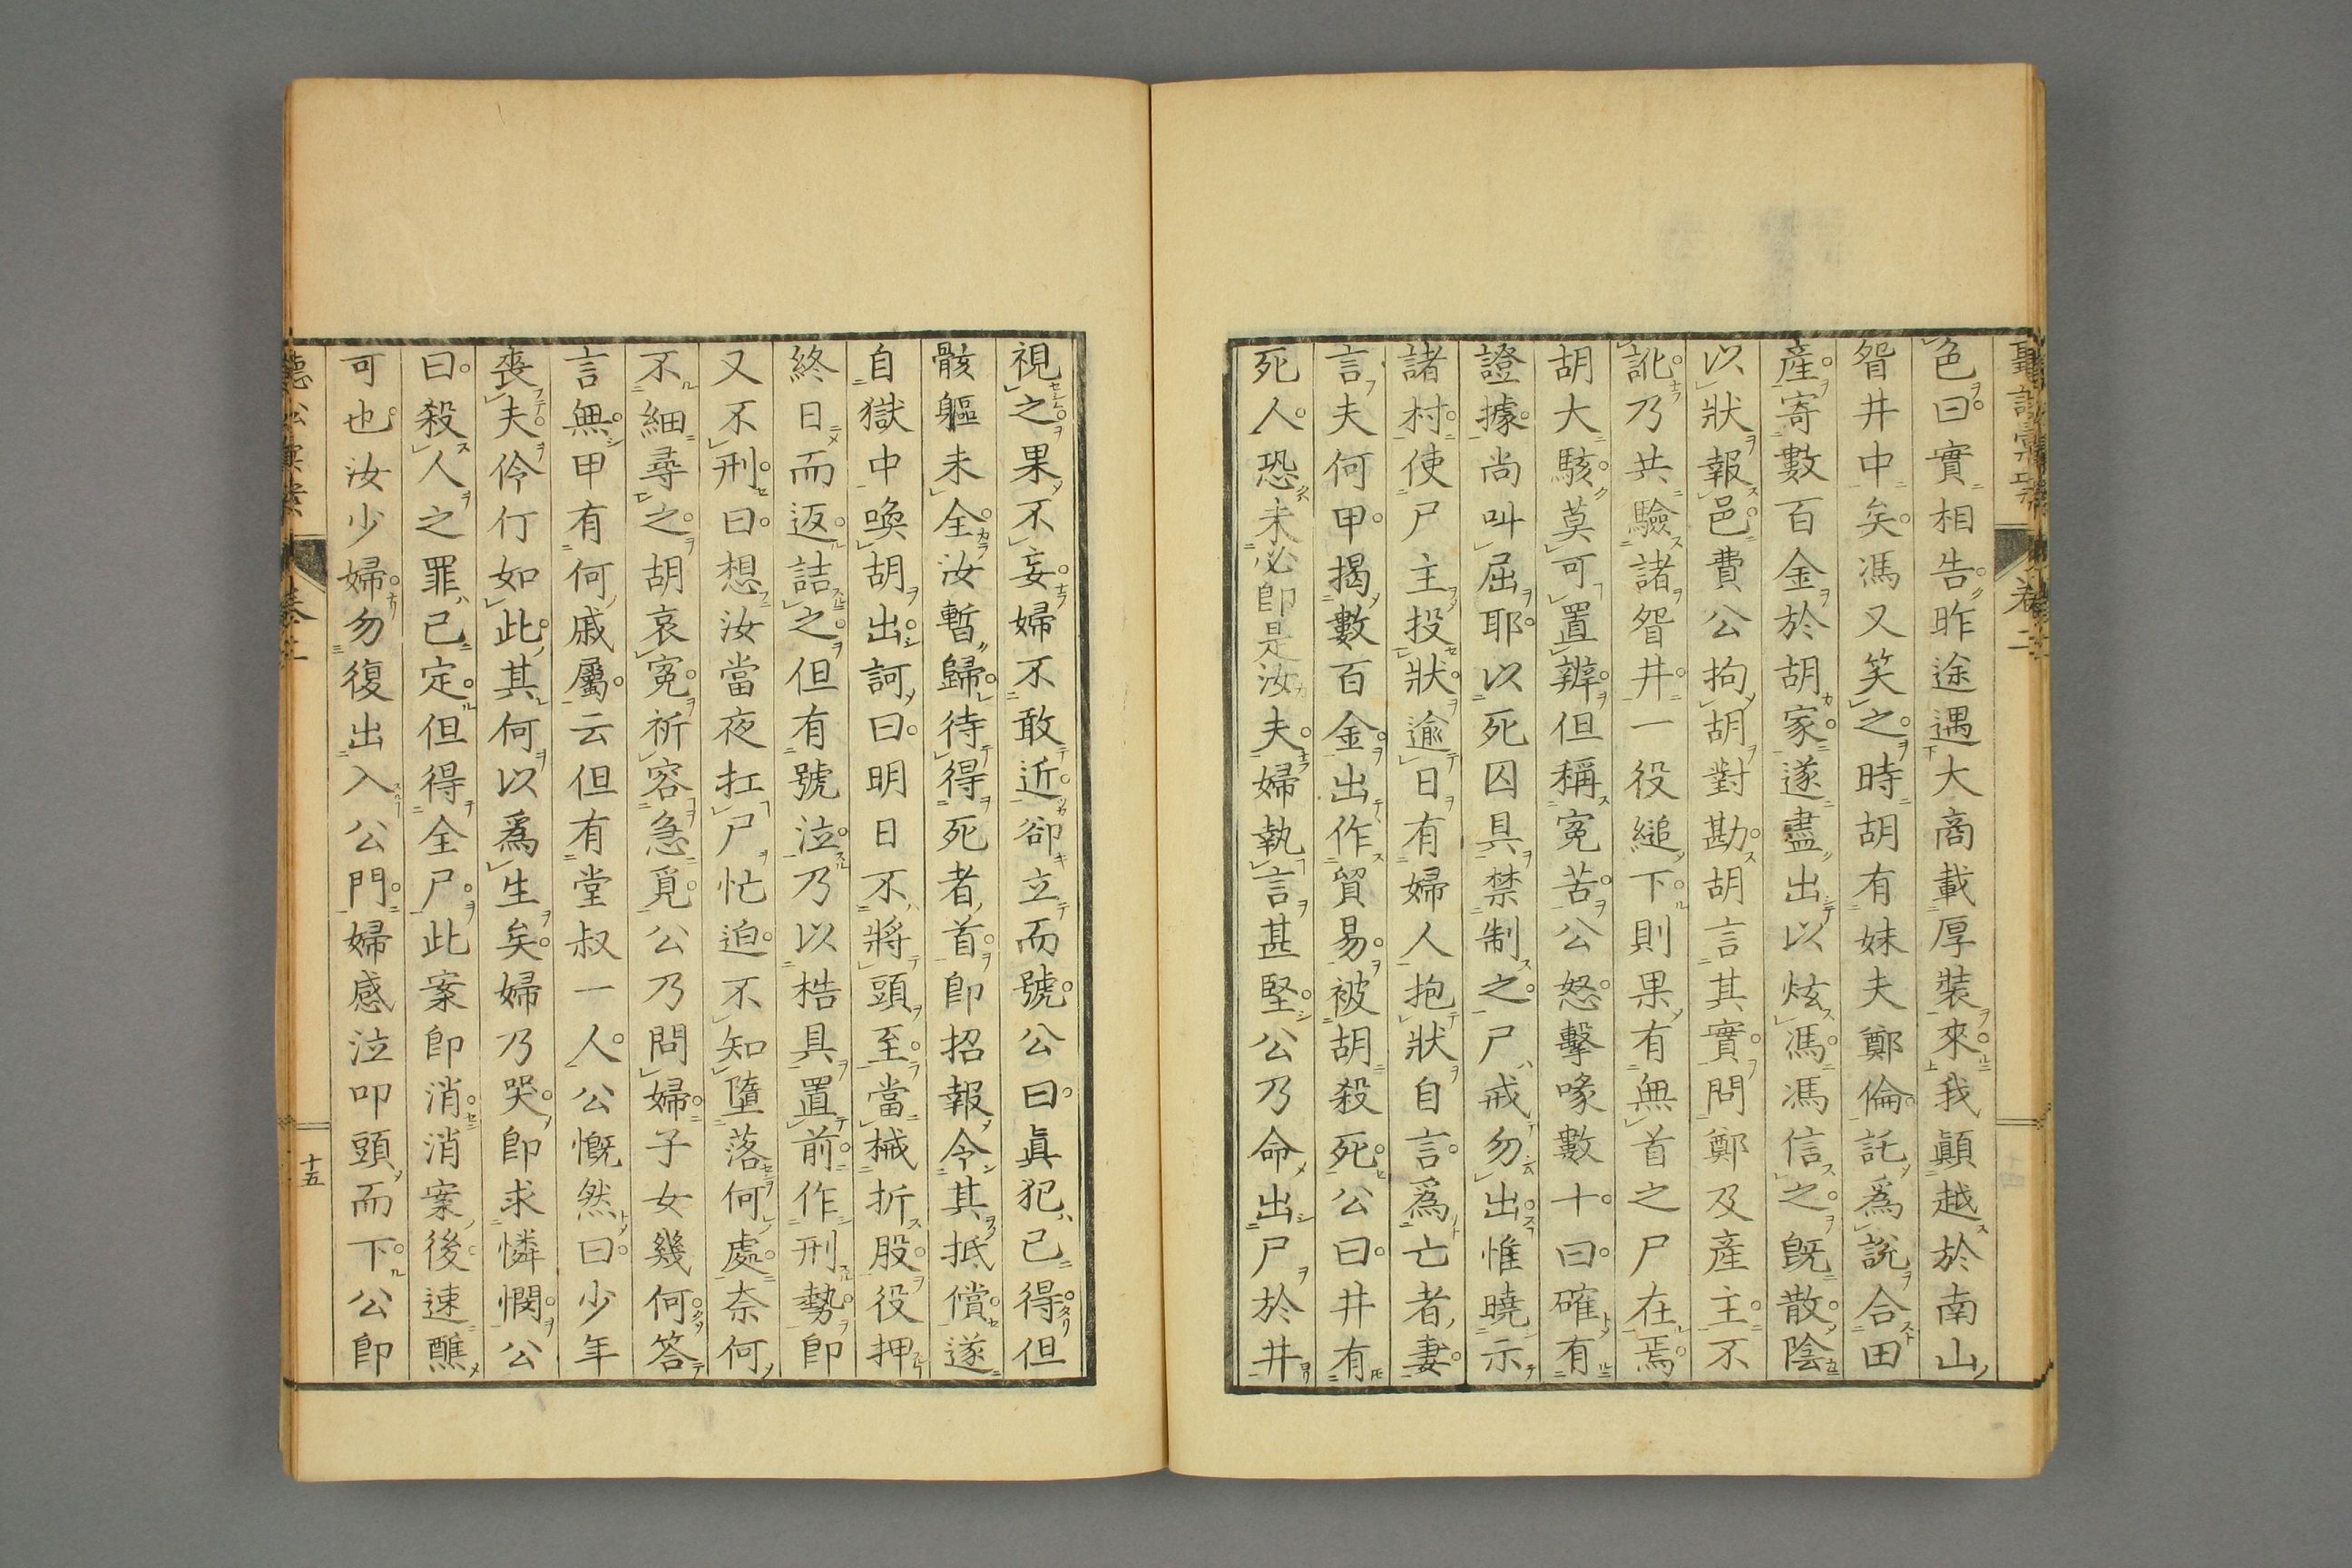 色曰實相告昨途遇大商載厚裝來我顚越於南山
眢井中矣馮又笑之時胡有妹夫鄭倫託爲說合田
產寄數百金於胡家遂盡出以炫馮馮信之旣散陰
以狀報邑費公拘胡對勘胡言其實問鄭及產主不
訛乃共驗諸眢井一役縋下則果有無首之尸在焉
胡大駭莫可置辨但稱寃苦公怒擊喙數十曰確有
證據尚叫屈耶以死囚具禁制之尸戒勿出惟曉示
諸村使尸主投狀逾日有婦人抱狀自言爲亡者妻
言夫何甲揭數百金出作貿易被胡殺死公曰井有
死人恐未必卽是汝夫婦執言甚堅公乃命出尸於井
視之果不妄婦不敢近卻立而號公曰眞犯已得但
骸軀未全汝暫歸待得死者首卽招報令其抵償遂
自獄中喚胡出訶曰明日不將頭至當械折股役押
終日而返詰之但有號泣乃以梏具置前作刑勢卽
又不刑曰想汝當夜扛尸忙迫不知墮落何處奈何
不細尋之胡哀寃祈容急覓公乃問婦子女幾何答
言無甲有何戚屬云但有堂叔一人公慨然曰少年
喪夫伶仃如此其何以爲生矣婦乃哭卽求憐憫公
曰殺人之罪已定但得全尸此案卽消消案後速醮
可也汝少婦勿復出入公門婦感泣叩頭而下公卽
十五